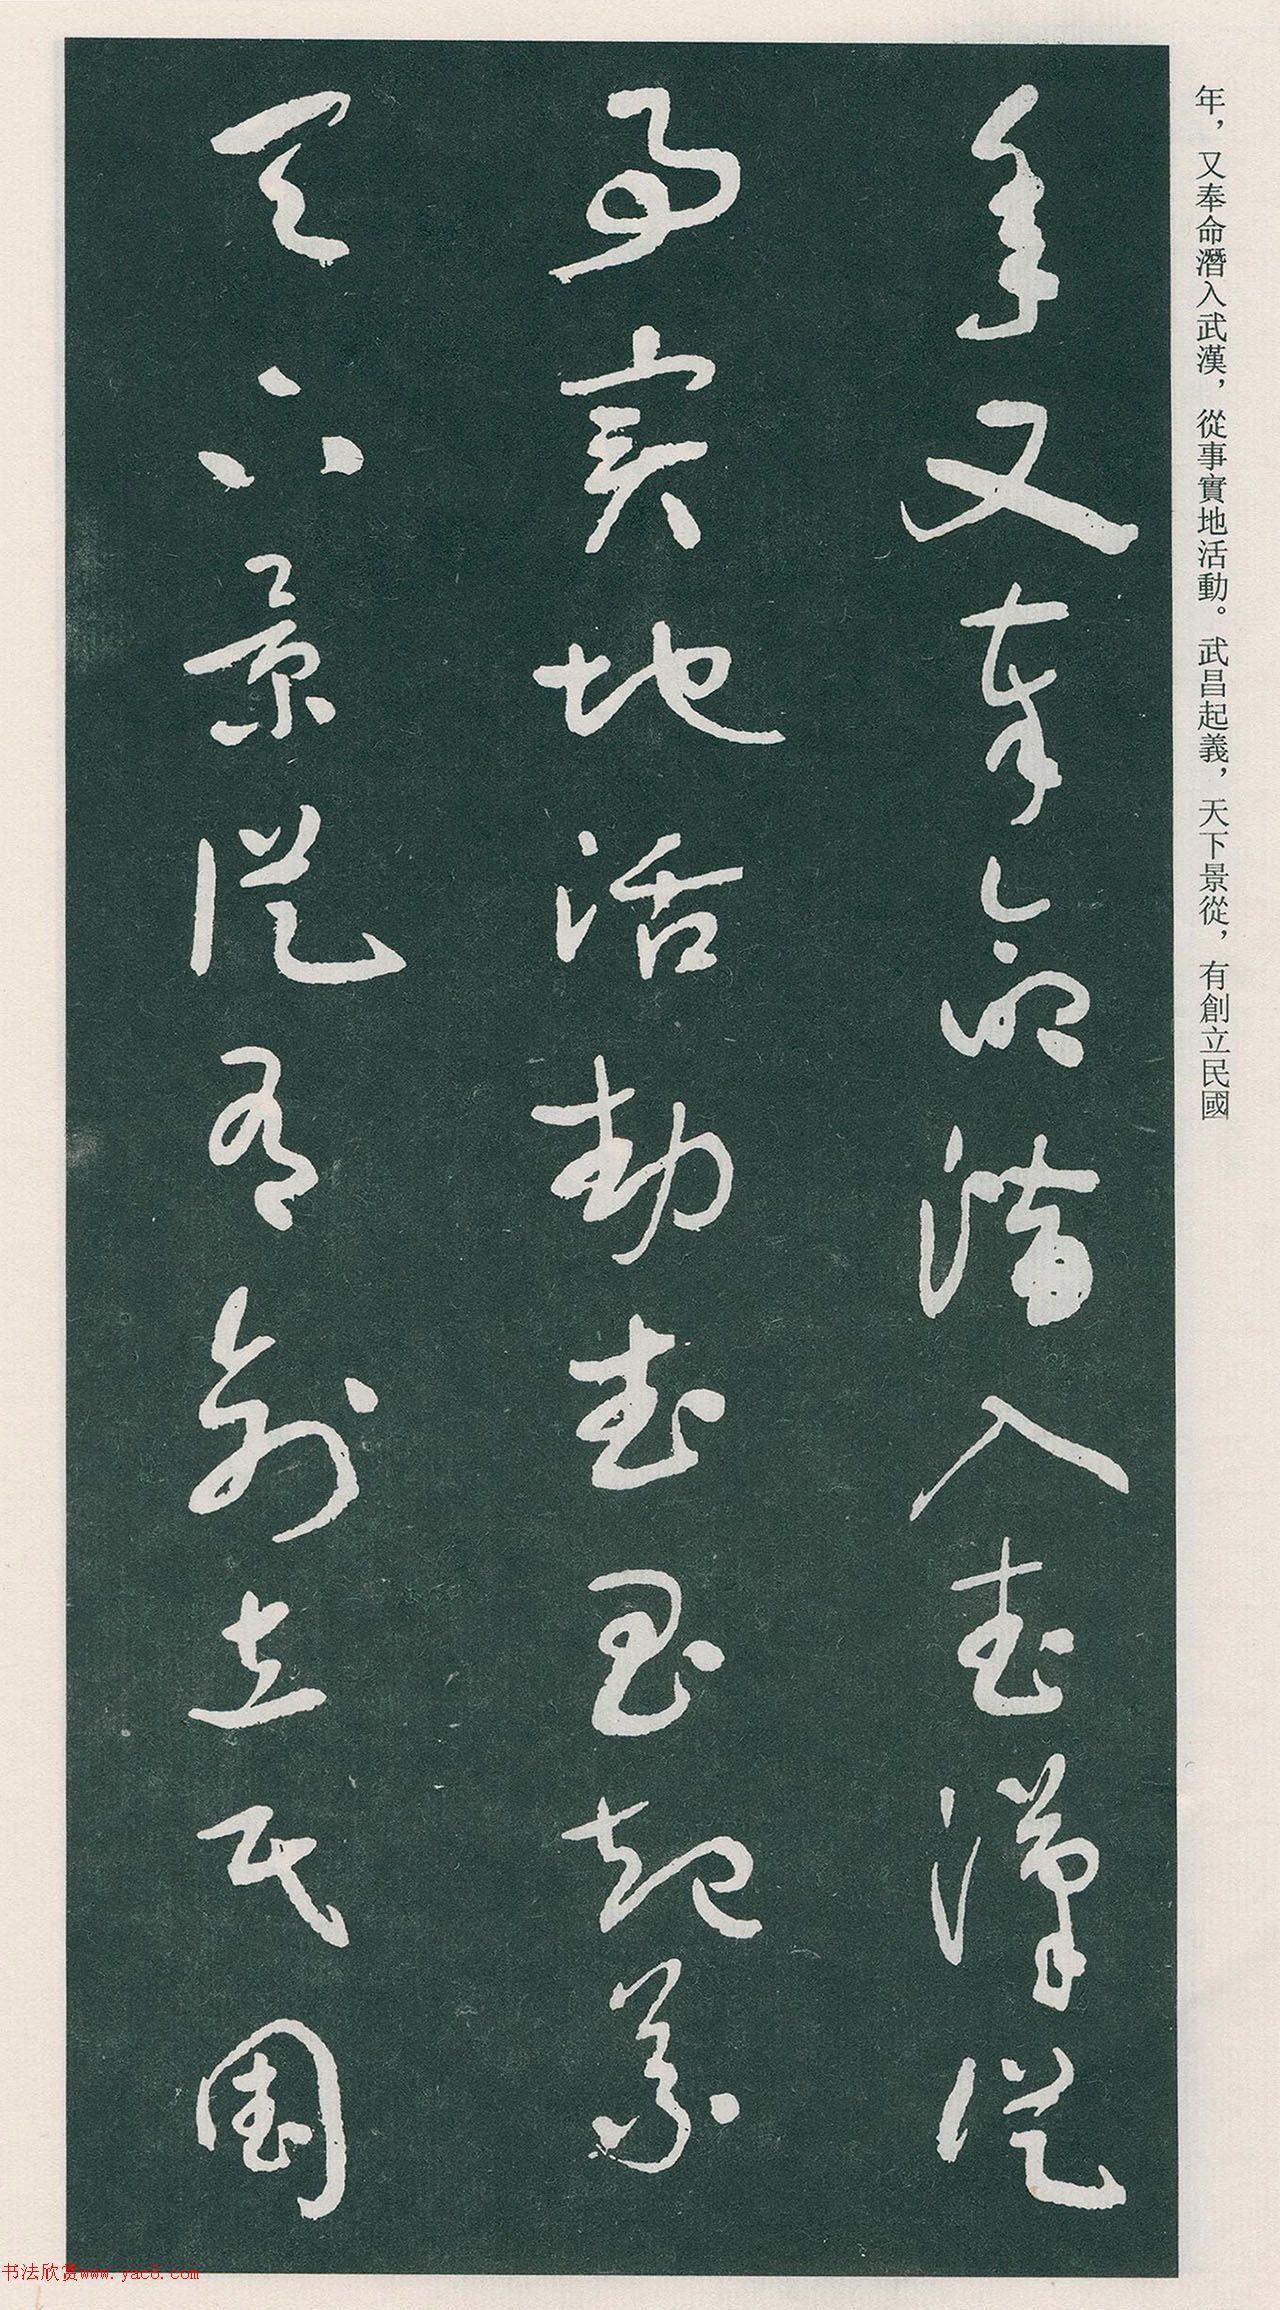 年，又奉命潛入武漢，從事實地活動。武昌起義，天下景從，有創立民國
年又奉命潛入武漢從
事實地活動武昌起義
天下景從有創立民國
书法欣赏www.yac8.com